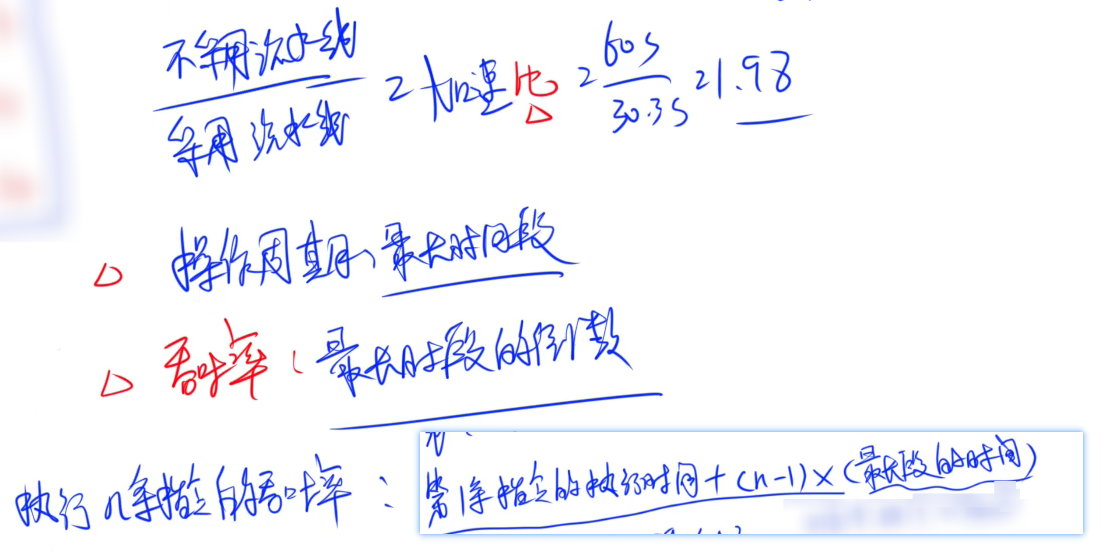 不采用流水线
采用流水线
= 加速比 = 60s / 30.3s = 1.98
△ 操作周期、最长时间段
△ 吞吐率：最长时段的倒数
执行n条指令的吞吐率：
第1条指令的执行时间+(n-1)×(最长段的时间)